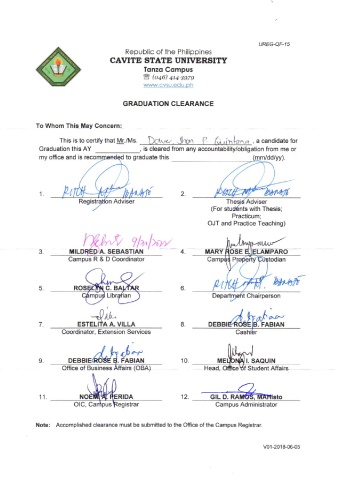 UREG-QF-15
Republic of the Philippines
CAVITE STATE UNIVERSITY
Tanza Campus
☏ (046) 414-3979
www.cvsu.edu.ph
GRADUATION CLEARANCE
To Whom This May Concern:
This is to certify that Mr./Ms. P. Quintana, a candidate for
Graduation this AY , is cleared from any accountability/obligation from me or
my office and is recommended to graduate this (mm/dd/yy).
1. 2.
Registration Adviser Thesis Adviser
(For students with Thesis;
Practicum;
OJT and Practice Teaching)
3. MILDRED A. SEBASTIAN 4. MARY ROSE E. ELAMPARO
Campus R & D Coordinator Campus Property Custodian
5. ROSELYN C. BALTAR 6.
Campus Librarian Department Chairperson
7. ESTELITA A. VILLA 8. DEBBIE ROSE B. FABIAN
Coordinator, Extension Services Cashier
9. DEBBIE ROSE B. FABIAN 10. SAQUIN
Office of Business Affairs (OBA) Head, Office of Student Affairs
11. NOEMI A. PERIDA 12. GIL D. RAMOS,
OIC, Campus Registrar Campus Administrator
Note: Accomplished clearance must be submitted to the Office of the Campus Registrar.
V01-2018-06-05